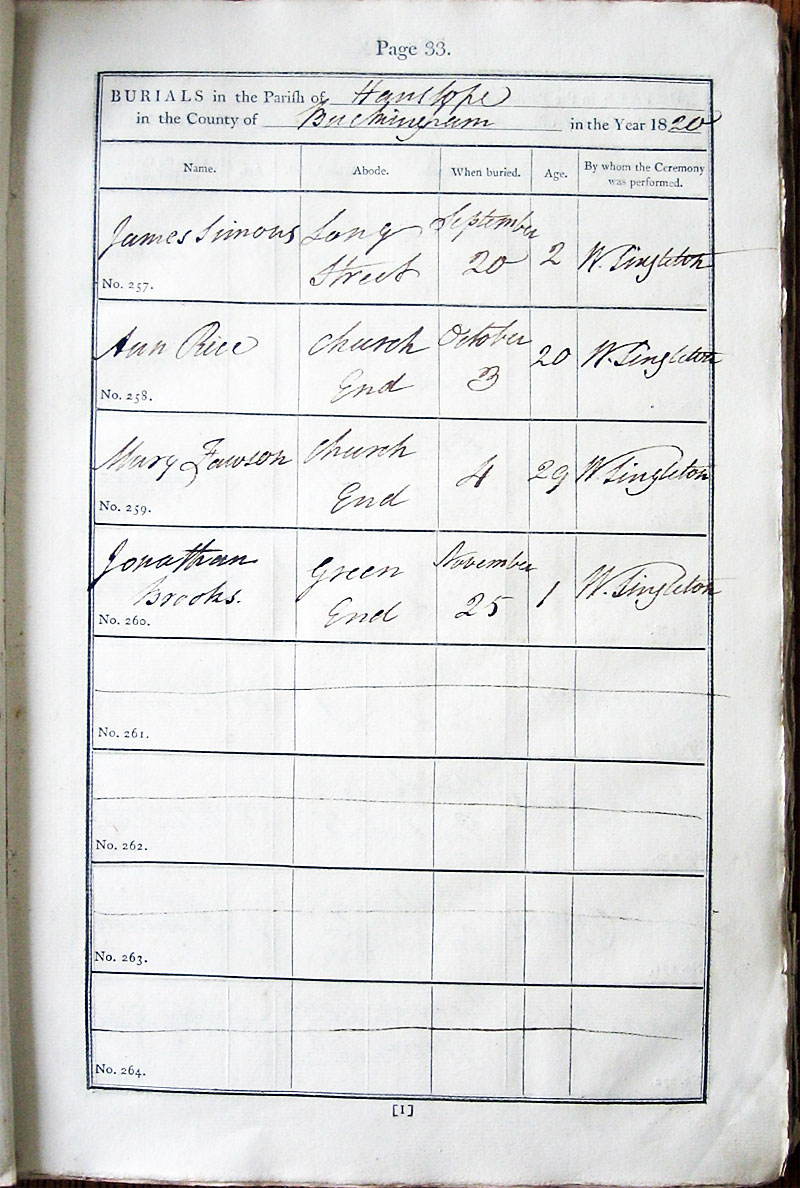 Page 33.
BURIALS in the Parish of Hanslope
in the County of Buckingham in the Year 1820
Name. Abode. When buried. Age. By whom the Ceremony was performed.
James Simons Long Street September 20 2 W. Singleton
No. 257.
Ann Rice Church End October 3 20 W. Singleton
No. 258.
Mary Lawson Church End 4 29 W Singleton
No. 259.
Jonathan Brooks. Green End November 25 1 W. Singleton
No. 260.
No. 261.
No. 262.
No. 263.
No. 264.
[1]